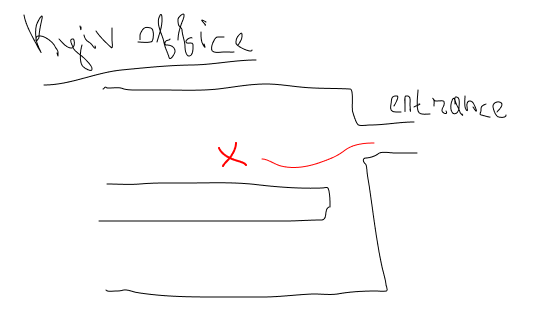 Kyiv office
entrance
X